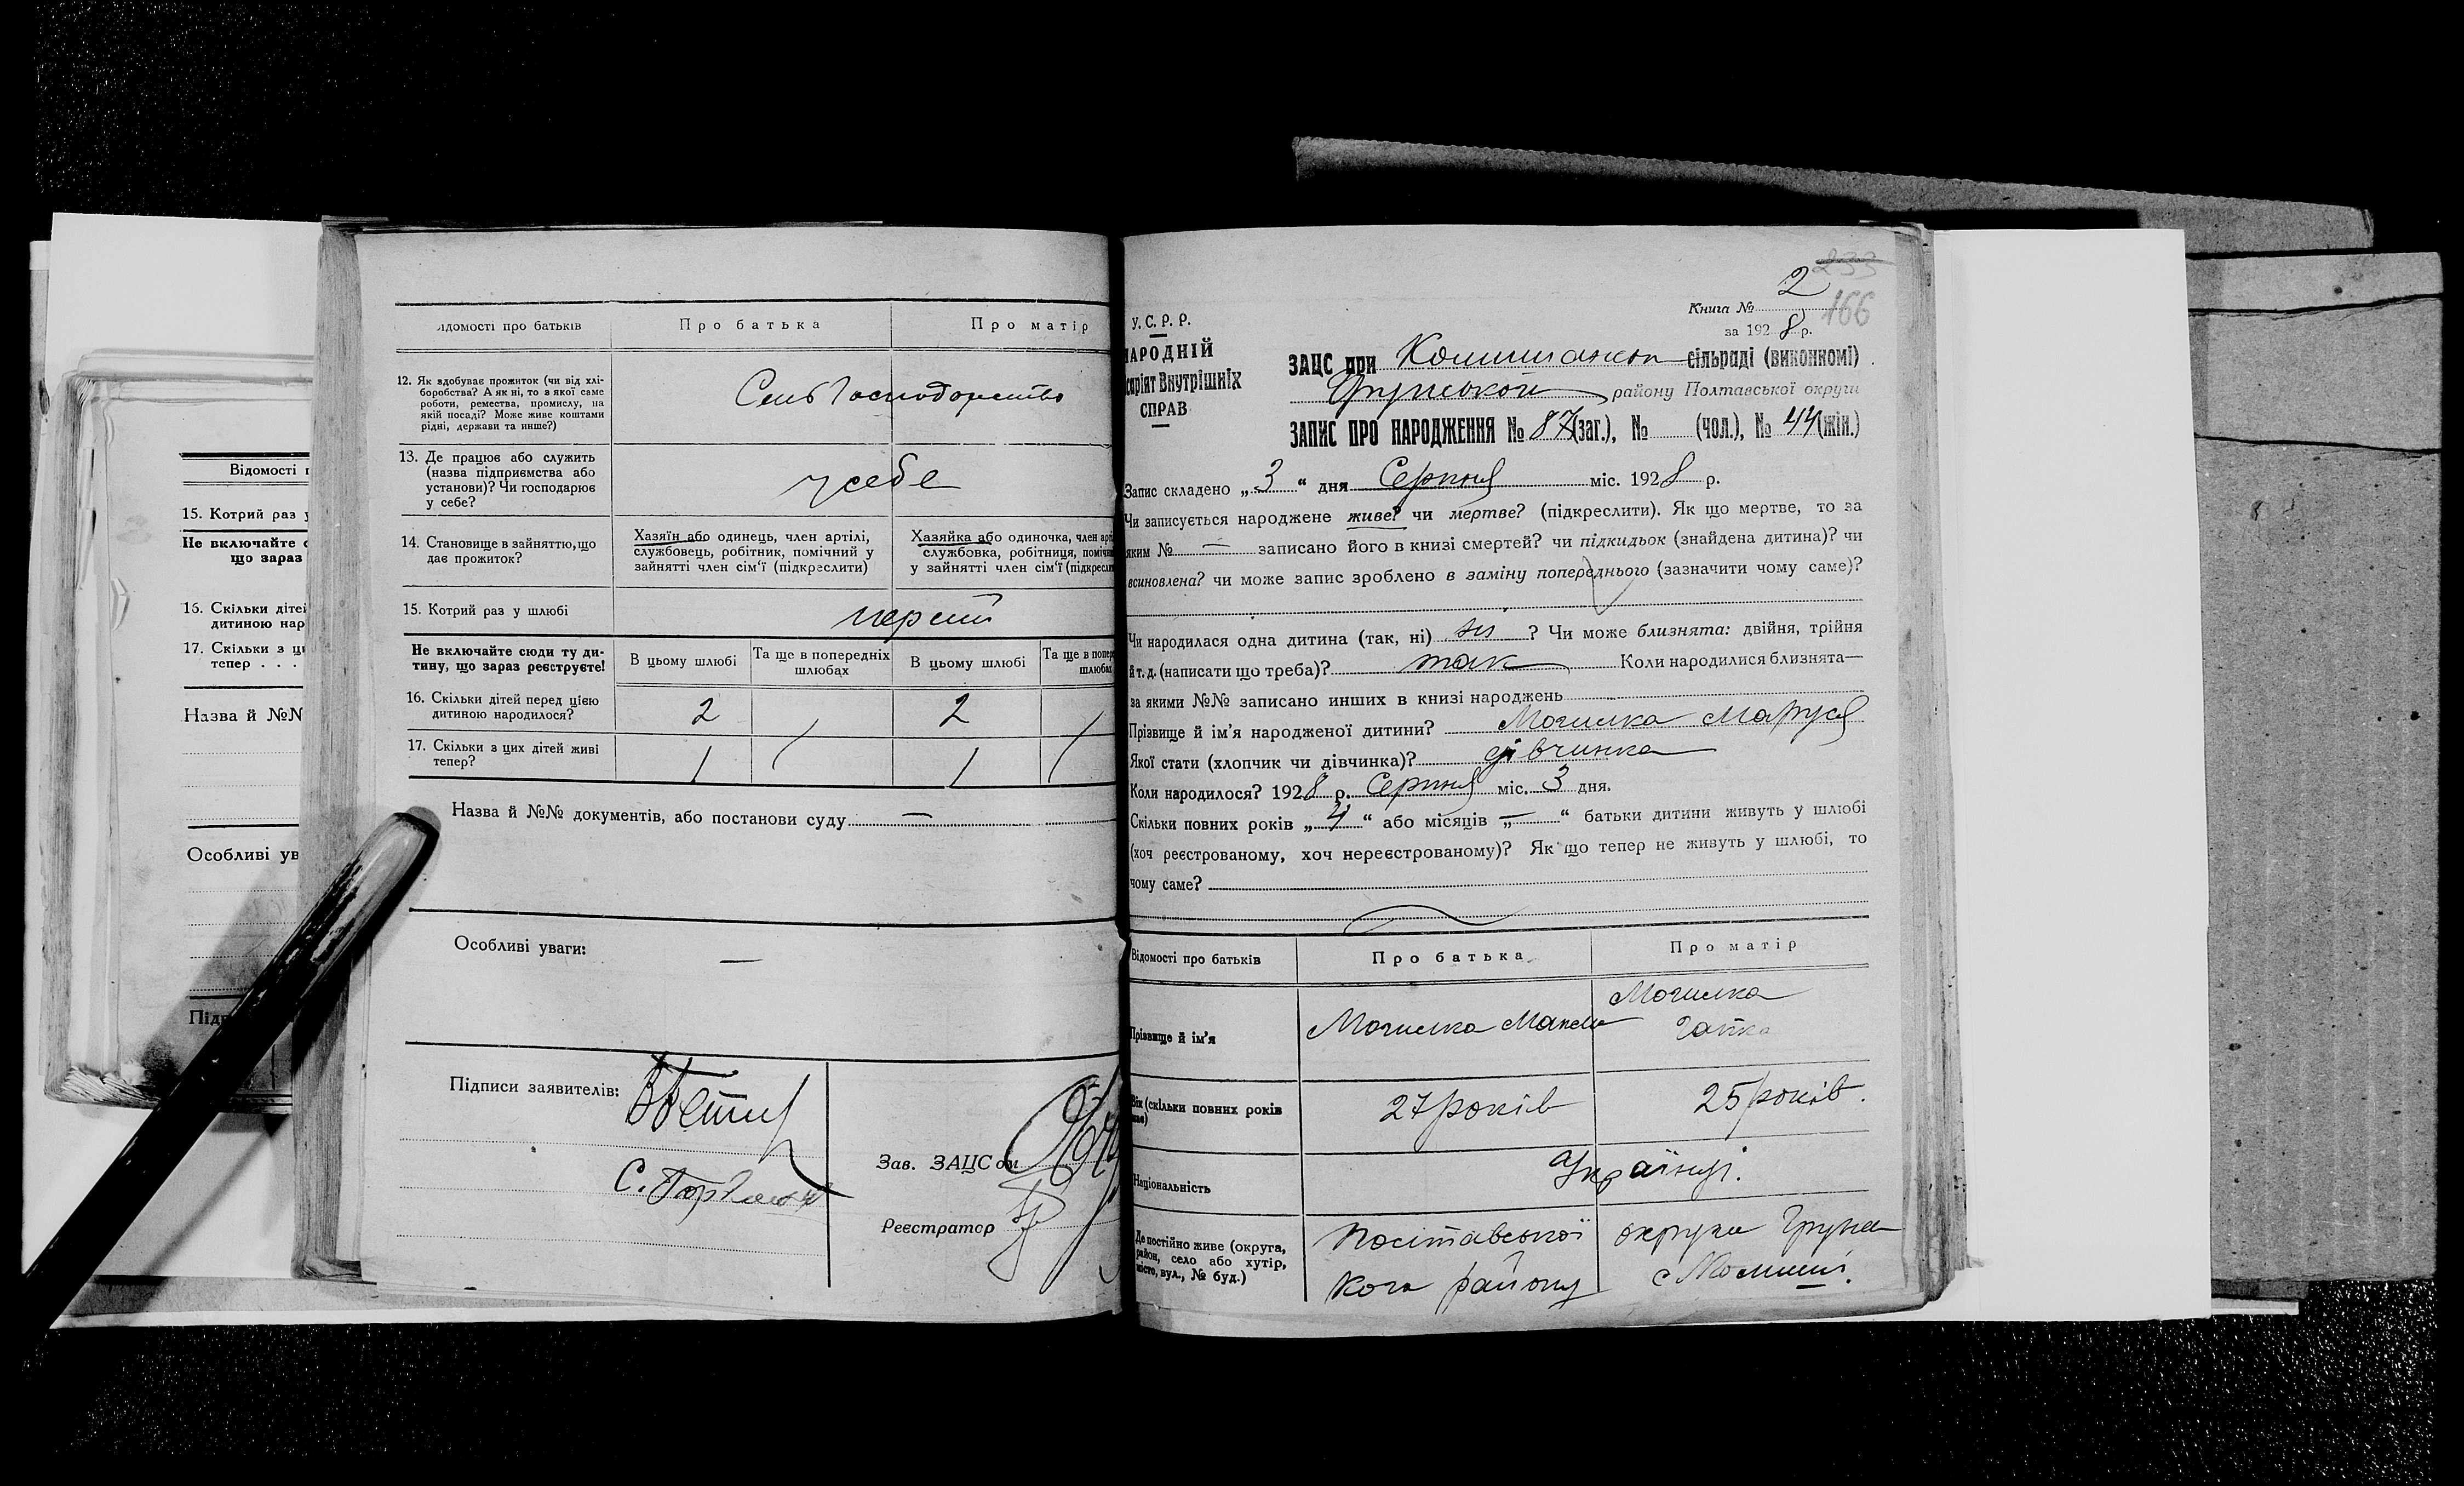 Відомості
15. Котрий раз у
Не включайте с
що зараз
16. Скільки дітей
дитиною нар
17. Скільки з ци
тепер . . .
Назва й №№
Особливі ув
Підп
ідомості про батьків
Про батька
Про матір
12. Як здобуває прожиток (чи від хлі-
боробства? А як ні, то з якої саме
роботи, ремества, промислу, на
якій посаді? Може живе коштами
рідні, держави та инше?)
13. Де працює або служить
(назва підприємства або
установи)? Чи господарює
у себе?
у себе
14. Становище в зайняттю, що
дає прожиток?
Хазяїн або одинець, член артілі,
службовець, робітник, помічний у
зайнятті член сім'ї (підкреслити)
Хазяйка або одиночка, член арті
службовка, робітниця, помічн
у зайнятті член сім'ї (підкресли
15. Котрий раз у шлюбі
перший
Не включайте сюди ту ди-
тину, що зараз реєструєте!
В цьому шлюбі
Та ще в попередніх
шлюбах
В цьому шлюбі
Та ще в попер
шлюбах
16. Скільки дітей перед цією
дитиною народилося?
2
2
17. Скільки з цих дітей живі
тепер?
1
1
Назва й №№ документів, або постанови суду —
Особливі уваги:
—
Підписи заявителів:
С.
Зав. ЗАЦСом
Реєстратор
233
166
Книга № 2
за 1928 р.
У. С. Р. Р.
НАРОДНІЙ
саріят Внутрішніх
СПРАВ
ЗАЦС при сільраді (виконкомі)
Грунської району Полтавської округи
ЗАПИС ПРО НАРОДЖЕННЯ № 87 (заг.), № (чол.), № 44 (жін.)
Запис складено „3“ дня Серпня міс. 1928 р.
Чи записується народжене живе? чи мертве? (підкреслити). Як що мертве, то за
яким № — записано його в книзі смертей? чи підкидьок (знайдена дитина)? чи
всиновлена? чи може запис зроблено в заміну попереднього (зазначити чому саме)?
Чи народилася одна дитина (так, ні) ? Чи може близнята: двійня, трійня
й т. д. (написати що треба)? так Коли народилися близнята—
за якими №№ записано инших в книзі народжень
Прізвище й ім'я народженої дитини? Могилка Маруся
Якої стати (хлопчик чи дівчинка)? дівчинка
Коли народилося? 1928 р. Серпня міс. 3 дня.
Скільки повних років „4“ або місяців „—“ батьки дитини живуть у шлюбі
(хоч реєстрованому, хоч нереєстрованому)? Як що тепер не живуть у шлюбі, то
чому саме?
Відомості про батьків
Про батька
Про матір
Прізвище й ім'я
Могилка
Могилка
Вік (скільки повних років
має)
27 років
25 років.
Національність
Українці.
Де постійно живе (округа,
район, село або хутір,
місто, вул., № буд.)
округи Грунсь
кого району